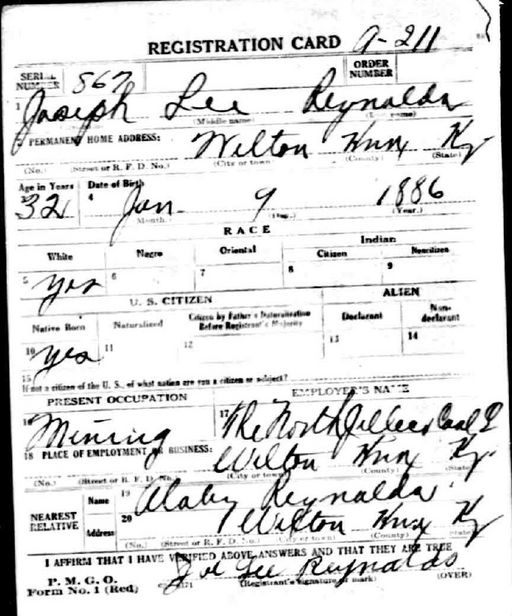 REGISTRATION CARD 9-211
SERIAL NUMBER 567 ORDER NUMBER
1 Joseph Lee Reynolds
(Middle name)
2 PERMANENT HOME ADDRESS: Wilton Knox Ky
(No.) (Street or R. F. D. No.) (City or town) (County) (State)
Age in Years Date of Birth
32 4 Jan 9 1886
(Month.) (Day.) (Year.)
RACE
White Negro Oriental Indian
Citizen Noncitizen
5 yes 6 7 8 9
U. S. CITIZEN ALIEN
Native Born Naturalized Citizen by Father's Naturalization Before Registrant's Majority Declarant Non-declarant
10 yes 11 12 13 14
15
If not a citizen of the U. S., of what nation are you a citizen or subject?
PRESENT OCCUPATION EMPLOYER'S NAME
16 Mining 17 The North Jellico Coal
18 PLACE OF EMPLOYMENT OR BUSINESS: Wilton Knox Ky.
(No.) (Street or R. F. D. No.) (City or town) (County) (State)
NEAREST RELATIVE Name 19 Reynolds
Address 20 Wilton Knox Ky
(No.) (Street or R. F. D. No.) (City or town) (County) (State)
I AFFIRM THAT I HAVE VERIFIED ABOVE ANSWERS AND THAT THEY ARE TRUE
P. M. G. O.
Form No. 1 (Red) Joe Lee Reynolds
(Registrant's signature or mark) (OVER)